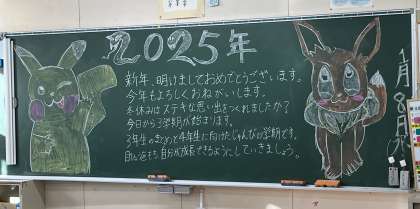 2025年
新年、明けましておめでとうございます。
今年もよろしくおねがいします。
冬休みはステキな思い出をつくれましたか?
今日から3学期が始まります。
3年生のまとめと4年生に向けたじゅんびの学期です。
自分が成長できるようにしていきましょう。
1月8日